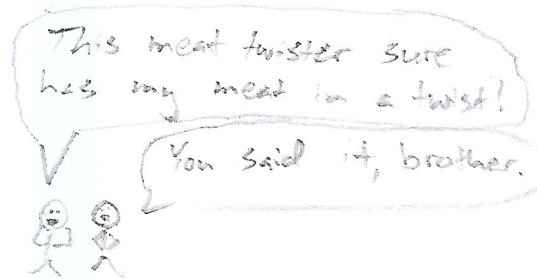 This meat twister sure
has my meat in a twist!
You said it, brother.